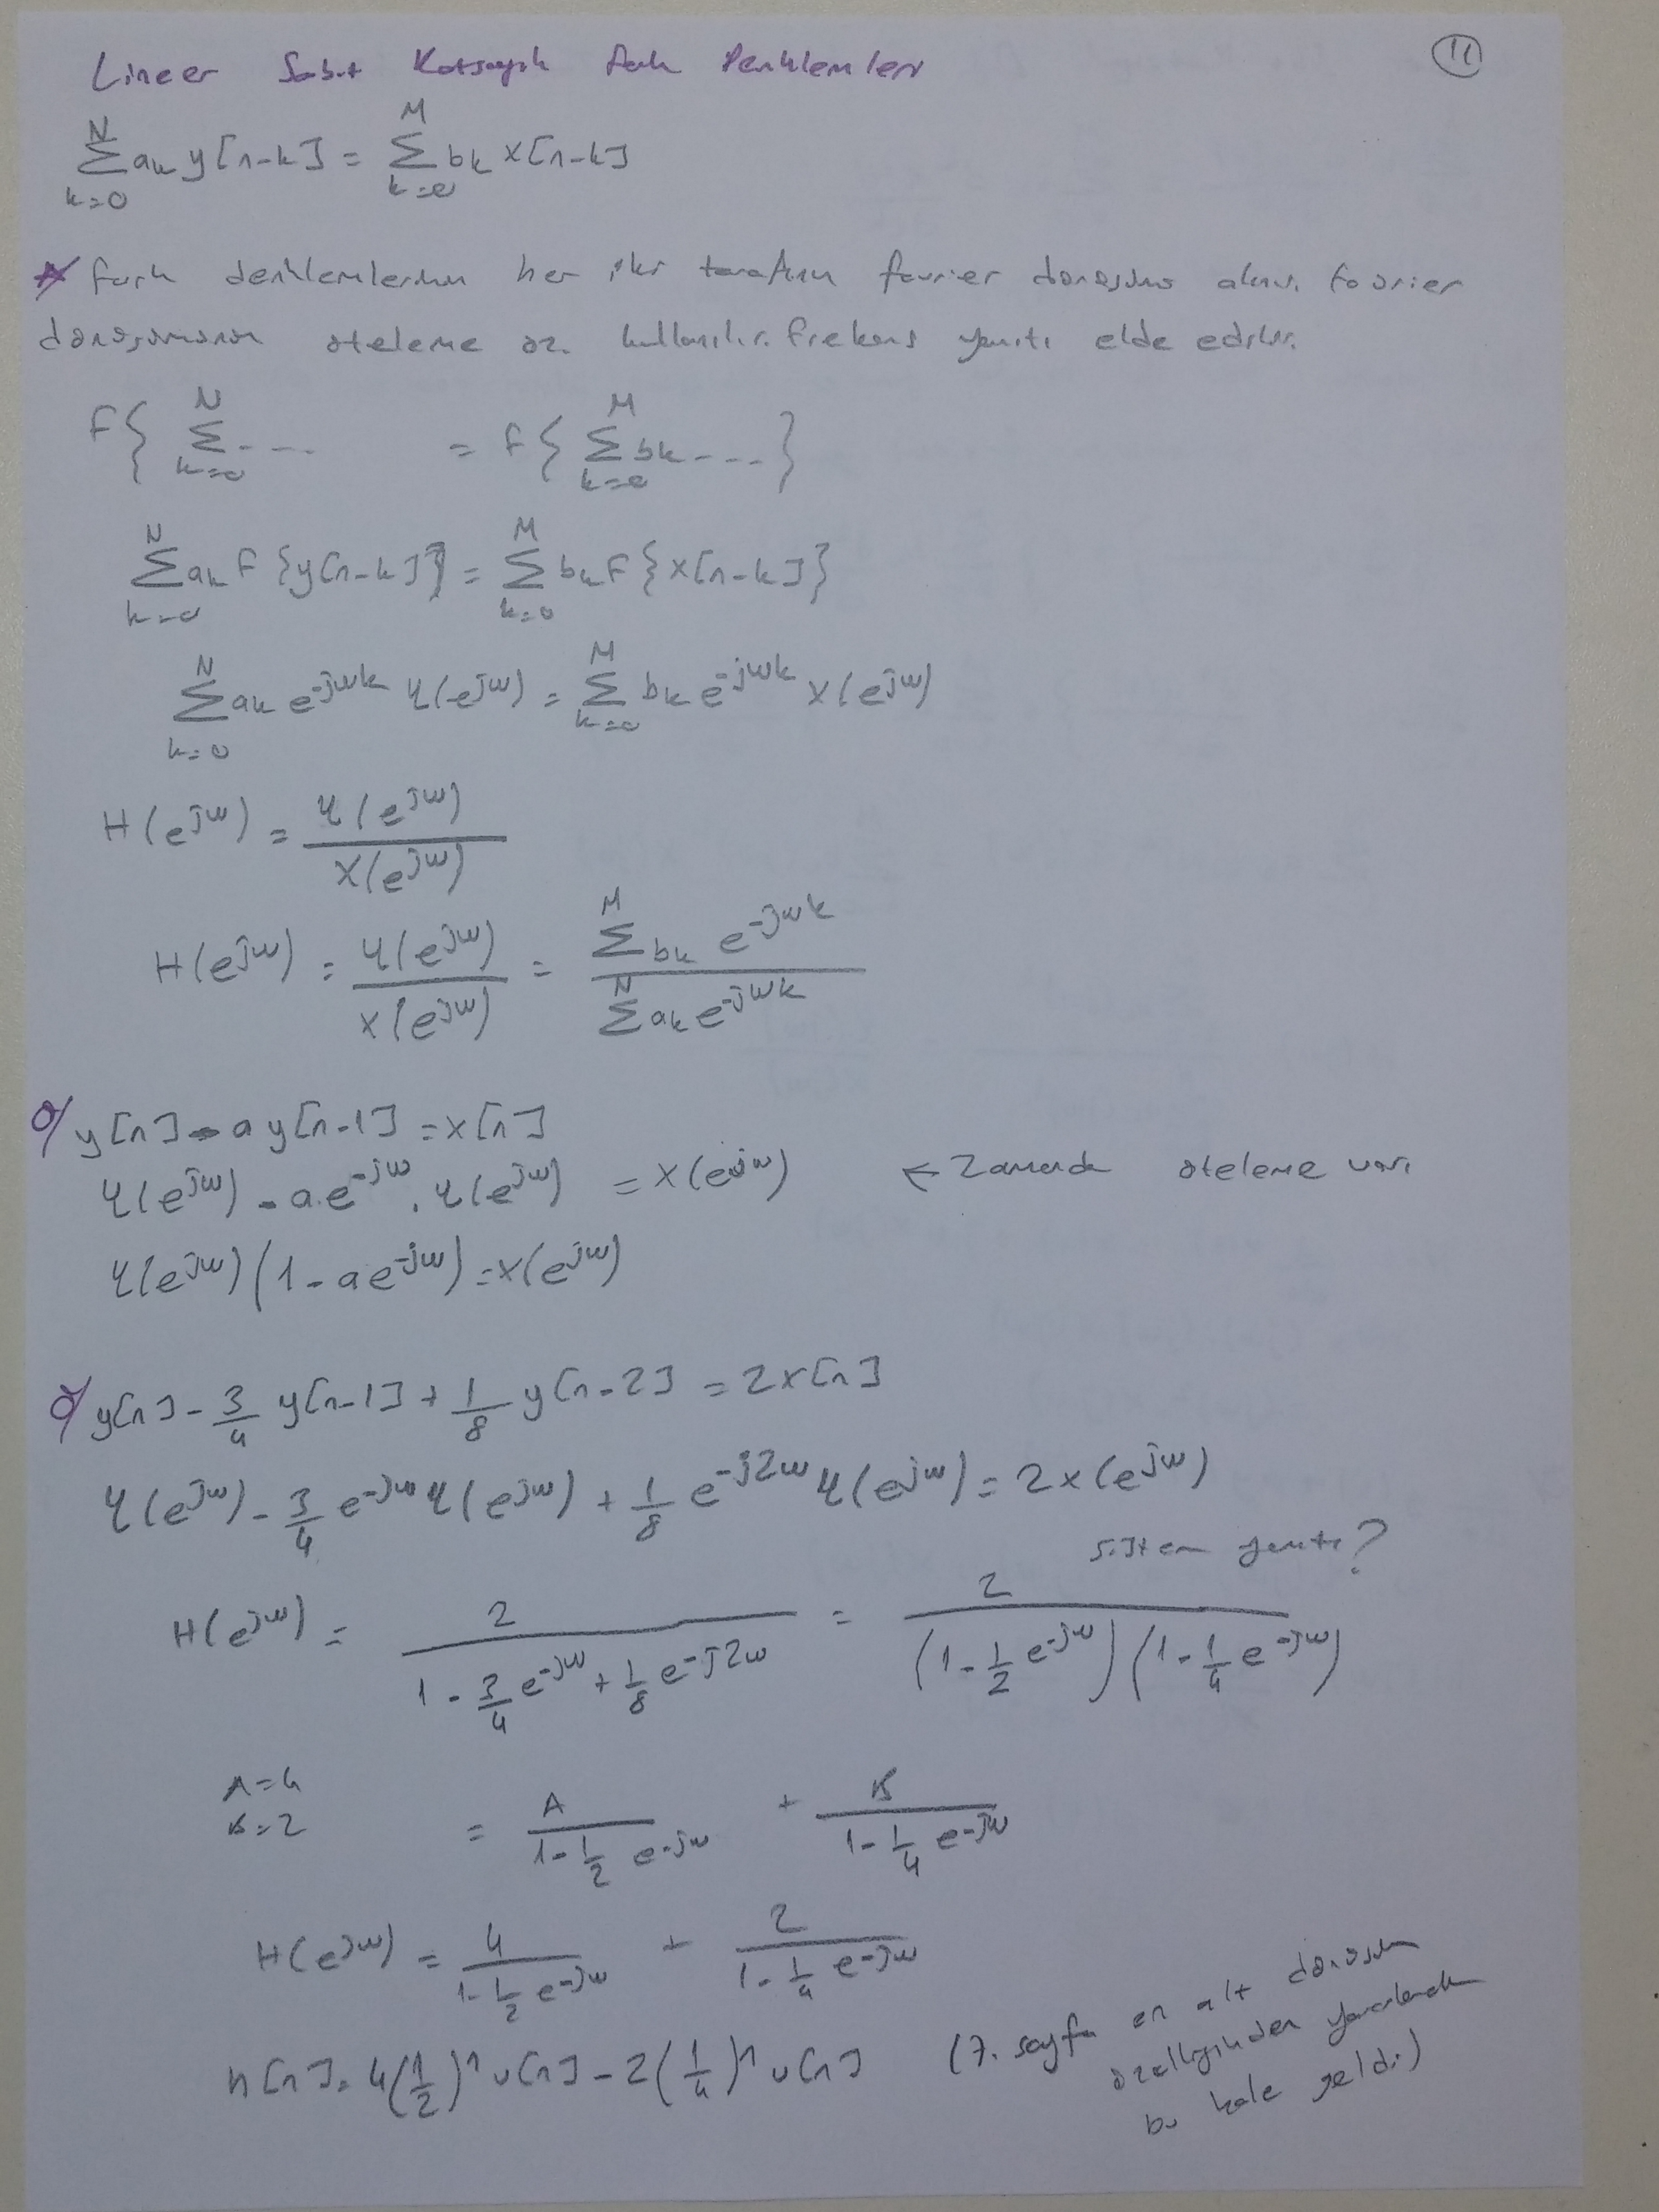 Lineer Sabit Katsayılı Fark Denklemleri
11
N∑k=0 ak y[n-k] = M∑k=0 bk x[n-k]
* fark denklemlerinin her iki tarafının fourier dönüşümü alınır. fourier
dönüşümünün öteleme öz. kullanılır. frekans yanıtı elde edilir.
F{ N∑k=0 --- = F{ M∑k=0 bk --- }
N∑k=0 ak F{y[n-k]} = M∑k=0 bk F{x[n-k]}
N∑k=0 ak e^-jwk Y(e^jw) = M∑k=0 bk e^-jwk X(e^jw)
H(e^jw) = Y(e^jw) / X(e^jw)
H(e^jw) = Y(e^jw) / X(e^jw) = M∑ bk e^-jwk / N∑ ak e^-jwk
Ö/ y[n] - a y[n-1] = x[n]
Y(e^jw) - a.e^-jw . Y(e^jw) = X(e^jw) ← Zamanda öteleme var.
Y(e^jw) (1 - a e^-jw) = X(e^jw)
Ö/ y[n] - 3/4 y[n-1] + 1/8 y[n-2] = 2x[n]
Y(e^jw) - 3/4 e^-jw Y(e^jw) + 1/8 e^-j2w Y(e^jw) = 2X(e^jw)
sistem yanıtı?
H(e^jw) = 2 / (1 - 3/4 e^-jw + 1/8 e^-j2w) = 2 / (1 - 1/2 e^-jw)(1 - 1/4 e^-jw)
A=4
B=2
= A / (1 - 1/2 e^-jw) + B / (1 - 1/4 e^-jw)
H(e^jw) = 4 / (1 - 1/2 e^-jw) + 2 / (1 - 1/4 e^-jw)
h[n] = 4(1/2)^n u[n] - 2(1/4)^n u[n]
(7. sayfa en alt dönüşüm
özelliğinden yararlanarak
bu hale geldi.)